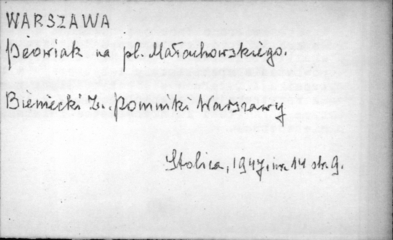 WARSZAWA
Peowiak na pl. Małachowskiego.
Biernecki Z. Pomniki Warszawy
Stolica, 1947, nr 14 str. 9.